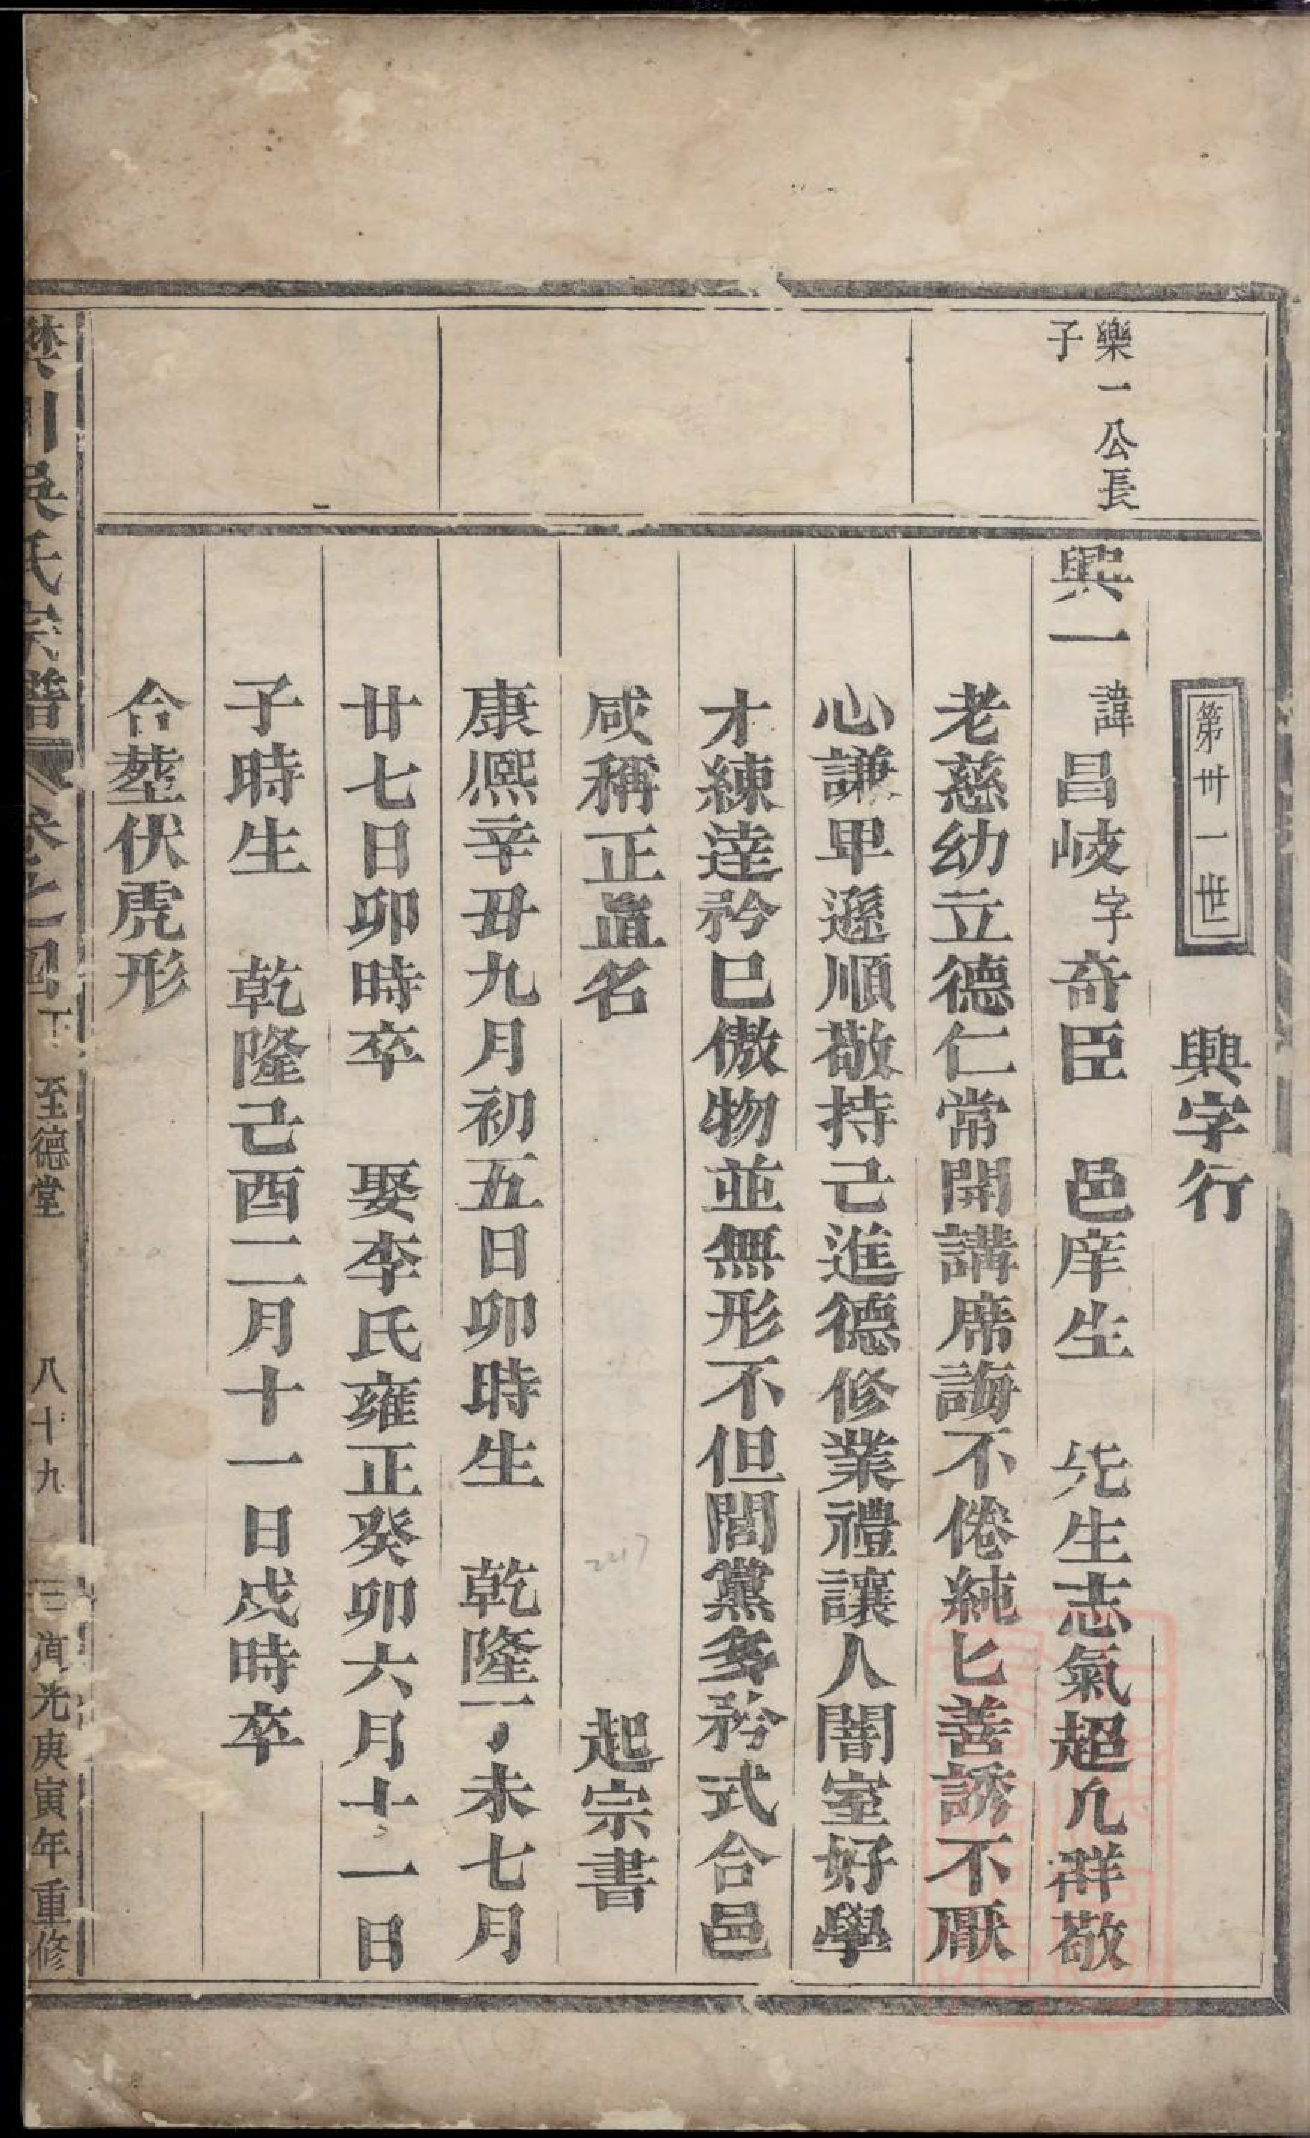 第卅一世 興字行
樂一公長
子
興一 諱昌岐字奇臣 邑庠生 先生志氣超凡群敬
老慈幼立德仁常開講席誨不倦純匕善誘不厭
心謙卑遜順敬持己進德修業禮讓人闇室好學
才練達矜巳傲物並無形不但閭黨多矜式合邑
咸稱正直名 起宗書
康熙辛丑九月初五日卯時生 乾隆丁未七月
廿七日卯時卒 娶李氏雍正癸卯六月十一日
子時生 乾隆己酉二月十一日戌時卒
合塟伏虎形
川吳氏宗譜 卷之四下 至德堂 八十九 道光庚寅年重修
2217